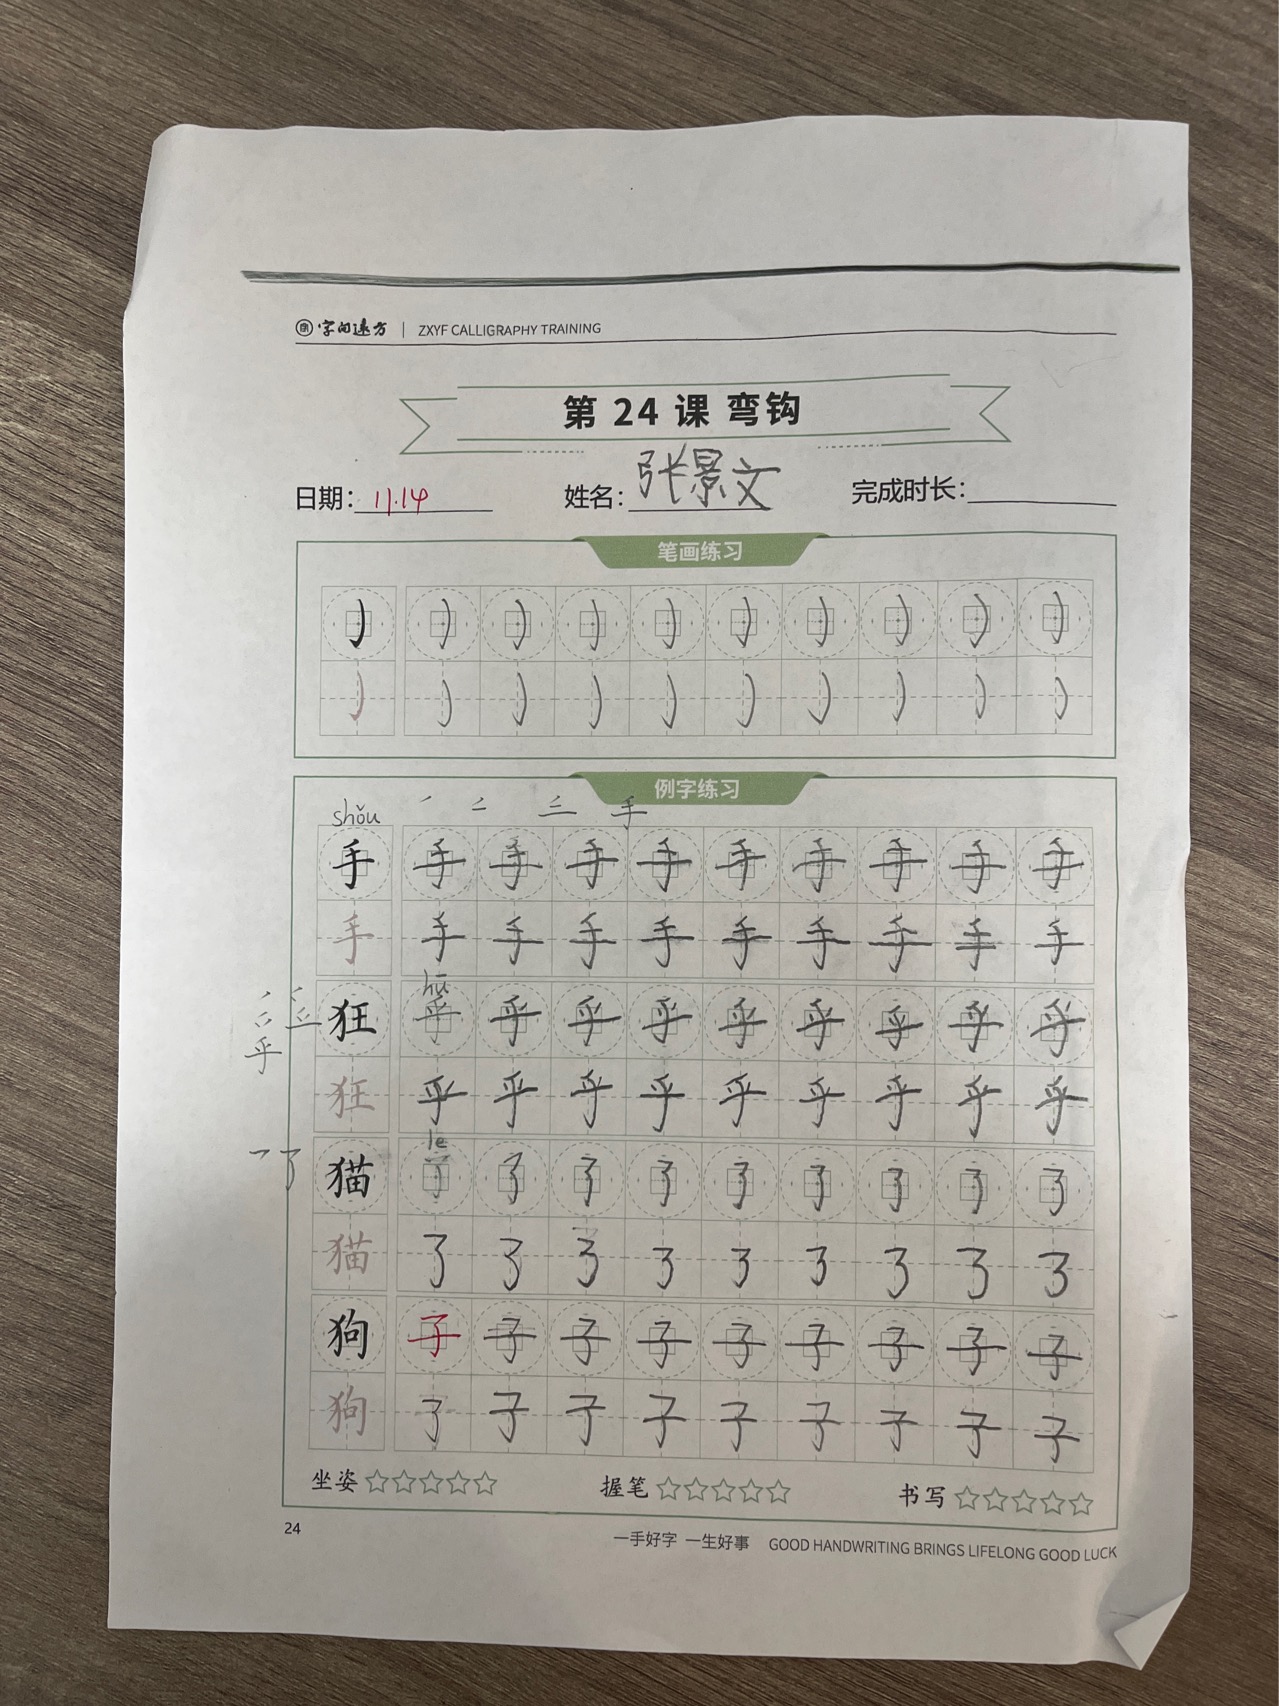 字向远方 | ZXYF CALLIGRAPHY TRAINING
第 24 课 弯钩
日期: 11.14 姓名: 张景文 完成时长:
笔画练习
例字练习
shǒu 手
手 手 手 手 手 手 手 手 手 手
手 手 手 手 手 手 手 手 手 手
hū
乎
狂 乎 乎 乎 乎 乎 乎 乎 乎 乎
狂 乎 乎 乎 乎 乎 乎 乎 乎 乎
le
了
猫 了 了 了 了 了 了 了 了 了
猫 了 了 了 了 了 了 了 了 了
狗 子 子 子 子 子 子 子 子 子
狗 了 子 子 子 子 子 子 子 子
坐姿 ☆☆☆☆☆ 握笔 ☆☆☆☆☆ 书写 ☆☆☆☆☆
24 一手好字 一生好事 GOOD HANDWRITING BRINGS LIFELONG GOOD LUCK